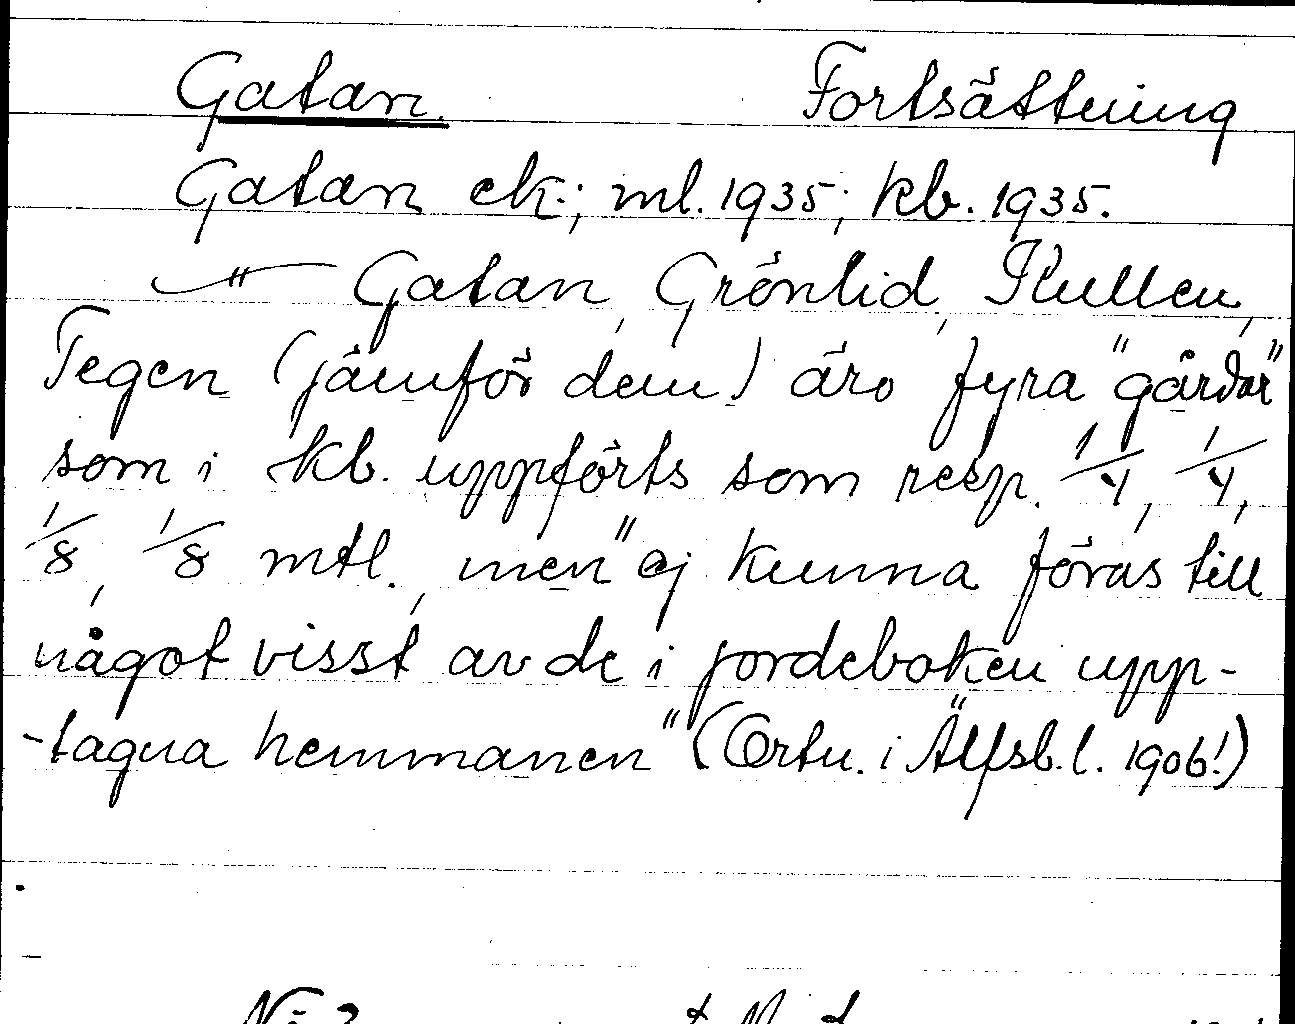 Gatan. Fortsättning
Gatan ek.; ml. 1935; kb. 1935.
—"— Gatan, Grönlid, Kullen,
Tegen (jämför dem) äro fyra "gårdar"
som i kb. uppförts som resp. 1/4, 1/4,
1/8, 1/8 mtl., men "ej kunna föras till
något visst av de i jordeboken upp-
-tagna hemmanen" (Ortn. i Älfsb. l. 1906!)